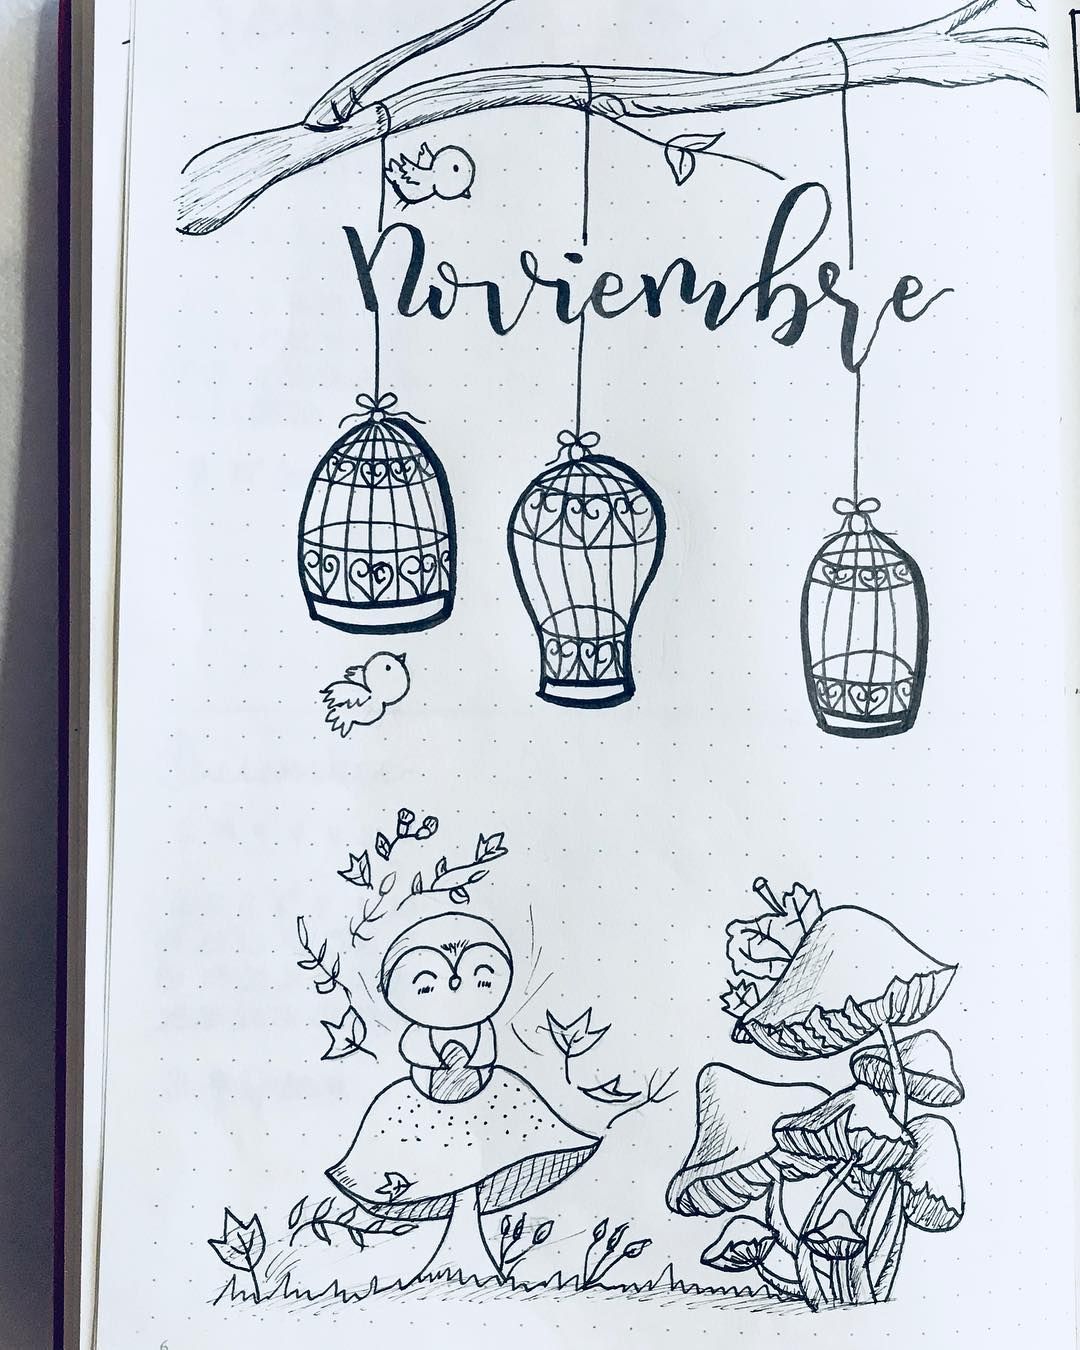 Noviembre
6